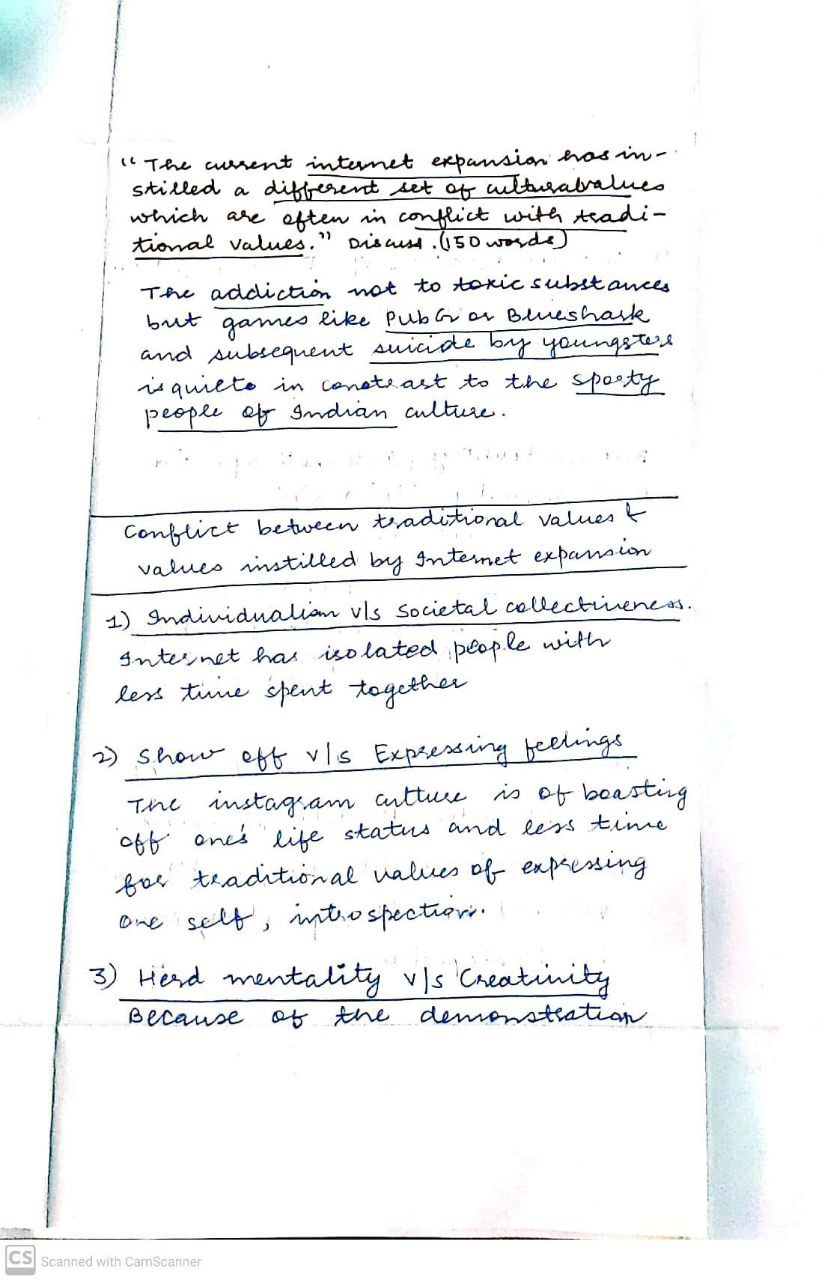 "The current internet expansion has in-
stilled a different set of culturalvalues
which are often in conflict with tradi-
tional values." Discuss. (150 words)
The addiction not to toxic substances
but games like PubG or Blueshark
and subsequent suicide by youngsters
is quiete in contrast to the sporty
people of Indian culture.
Conflict between traditional values &
values instilled by Internet expansion
1) Individualism v/s Societal collectiveness.
Internet has isolated people with
less time spent together
2) Show off v/s Expressing feelings
The instagram culture is of boasting
off one's life status and less time
for traditional values of expressing
one self, introspection.
3) Herd mentality v/s Creativity
Because of the demonstration
CS Scanned with CamScanner